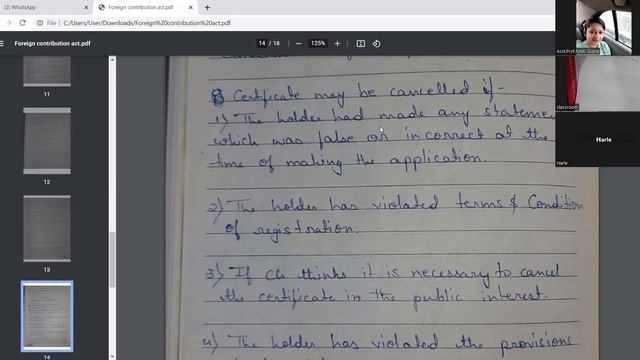 (2) WhatsApp
Foreign contribution act.pdf
C:/Users/User/Downloads/Foreign%20contribution%20act.pdf
Foreign contribution act.pdf
14 / 18
125%
11
12
13
14
Certificate may be cancelled if-
1) The holder had made any stateme
which was false or incorrect at the
time of making the application.
2) The holder has violated terms & Condition
of registration.
3) If CG thinks it is necessary to cancel
the certificate in the public interest.
4) The holder has violated the provisions
Asst.Prof.Nikki Gupta
classroom
Harle
Harle